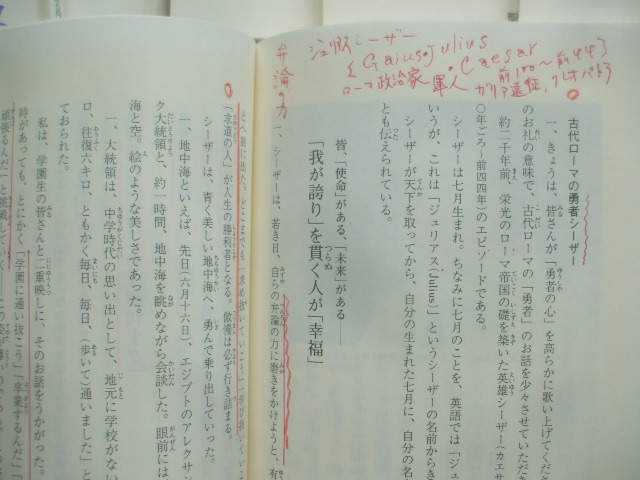 ジュリアス・シーザー
{Gaius・Julius
・Caesar
前100〜前44}
ローマ政治家 軍人 ガリア遠征、クレオパトラ
弁論の力
古代ローマの勇者シーザー
一、きょうは、皆さんが「勇者の心」を高らかに歌い上げてくださ
のお礼の意味で、古代ローマの「勇者」のお話を少々させていただき
約二千年前、栄光のローマ帝国の礎を築いた英雄シーザー(カエサ
〇年ごろ―前四四年)のエピソードである。
シーザーは七月生まれ。ちなみに七月のことを、英語では「ジュ
いうが、これは「ジュリアス(Julius)」というシーザーの名前からき
シーザーが天下を取ってから、自分の生まれた七月に、自分の名
とも伝えられている。
皆、「使命」がある、「未来」がある――
「我が誇り」を貫く人が「幸福」
一、シーザーは、若き日、自らの弁論の力に磨きをかけようと、有
とへ旅に出た。どこまでも「求め抜いていこう」「学び抜いていこ
「求道の人」が人生の勝利者となる。傲慢は必ず行き詰まる。
シーザーは、青く美しい地中海へ、勇んで乗り出していった。
一、地中海といえば、先日(六月十六日)、エジプトのアレクサン
ク大統領と、約一時間、地中海を眺めながら会談した。眼前には
海と空。絵のような美しさであった。
一、大統領は、中学時代の思い出として、地元に学校がない
ロ、往復六キロ、ともかく毎日、毎日、(歩いて)通いました」と
ておられた。
私は、学園生の皆さんと二重映しに、そのお話をうかがった。
時があっても、とにかく「学園に通い抜こう」「卒業するんだ」「
頑張るんだ」と挑戦していく――